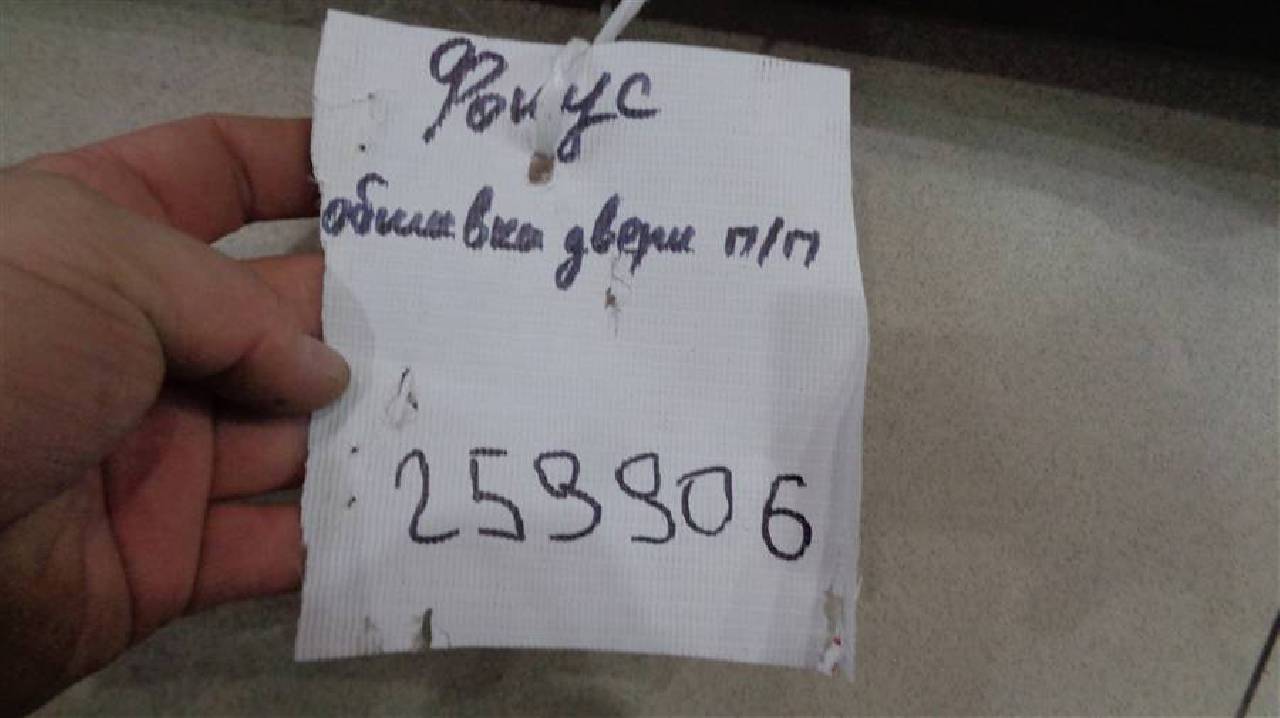 Фокус
обшивка двери п/п
259906